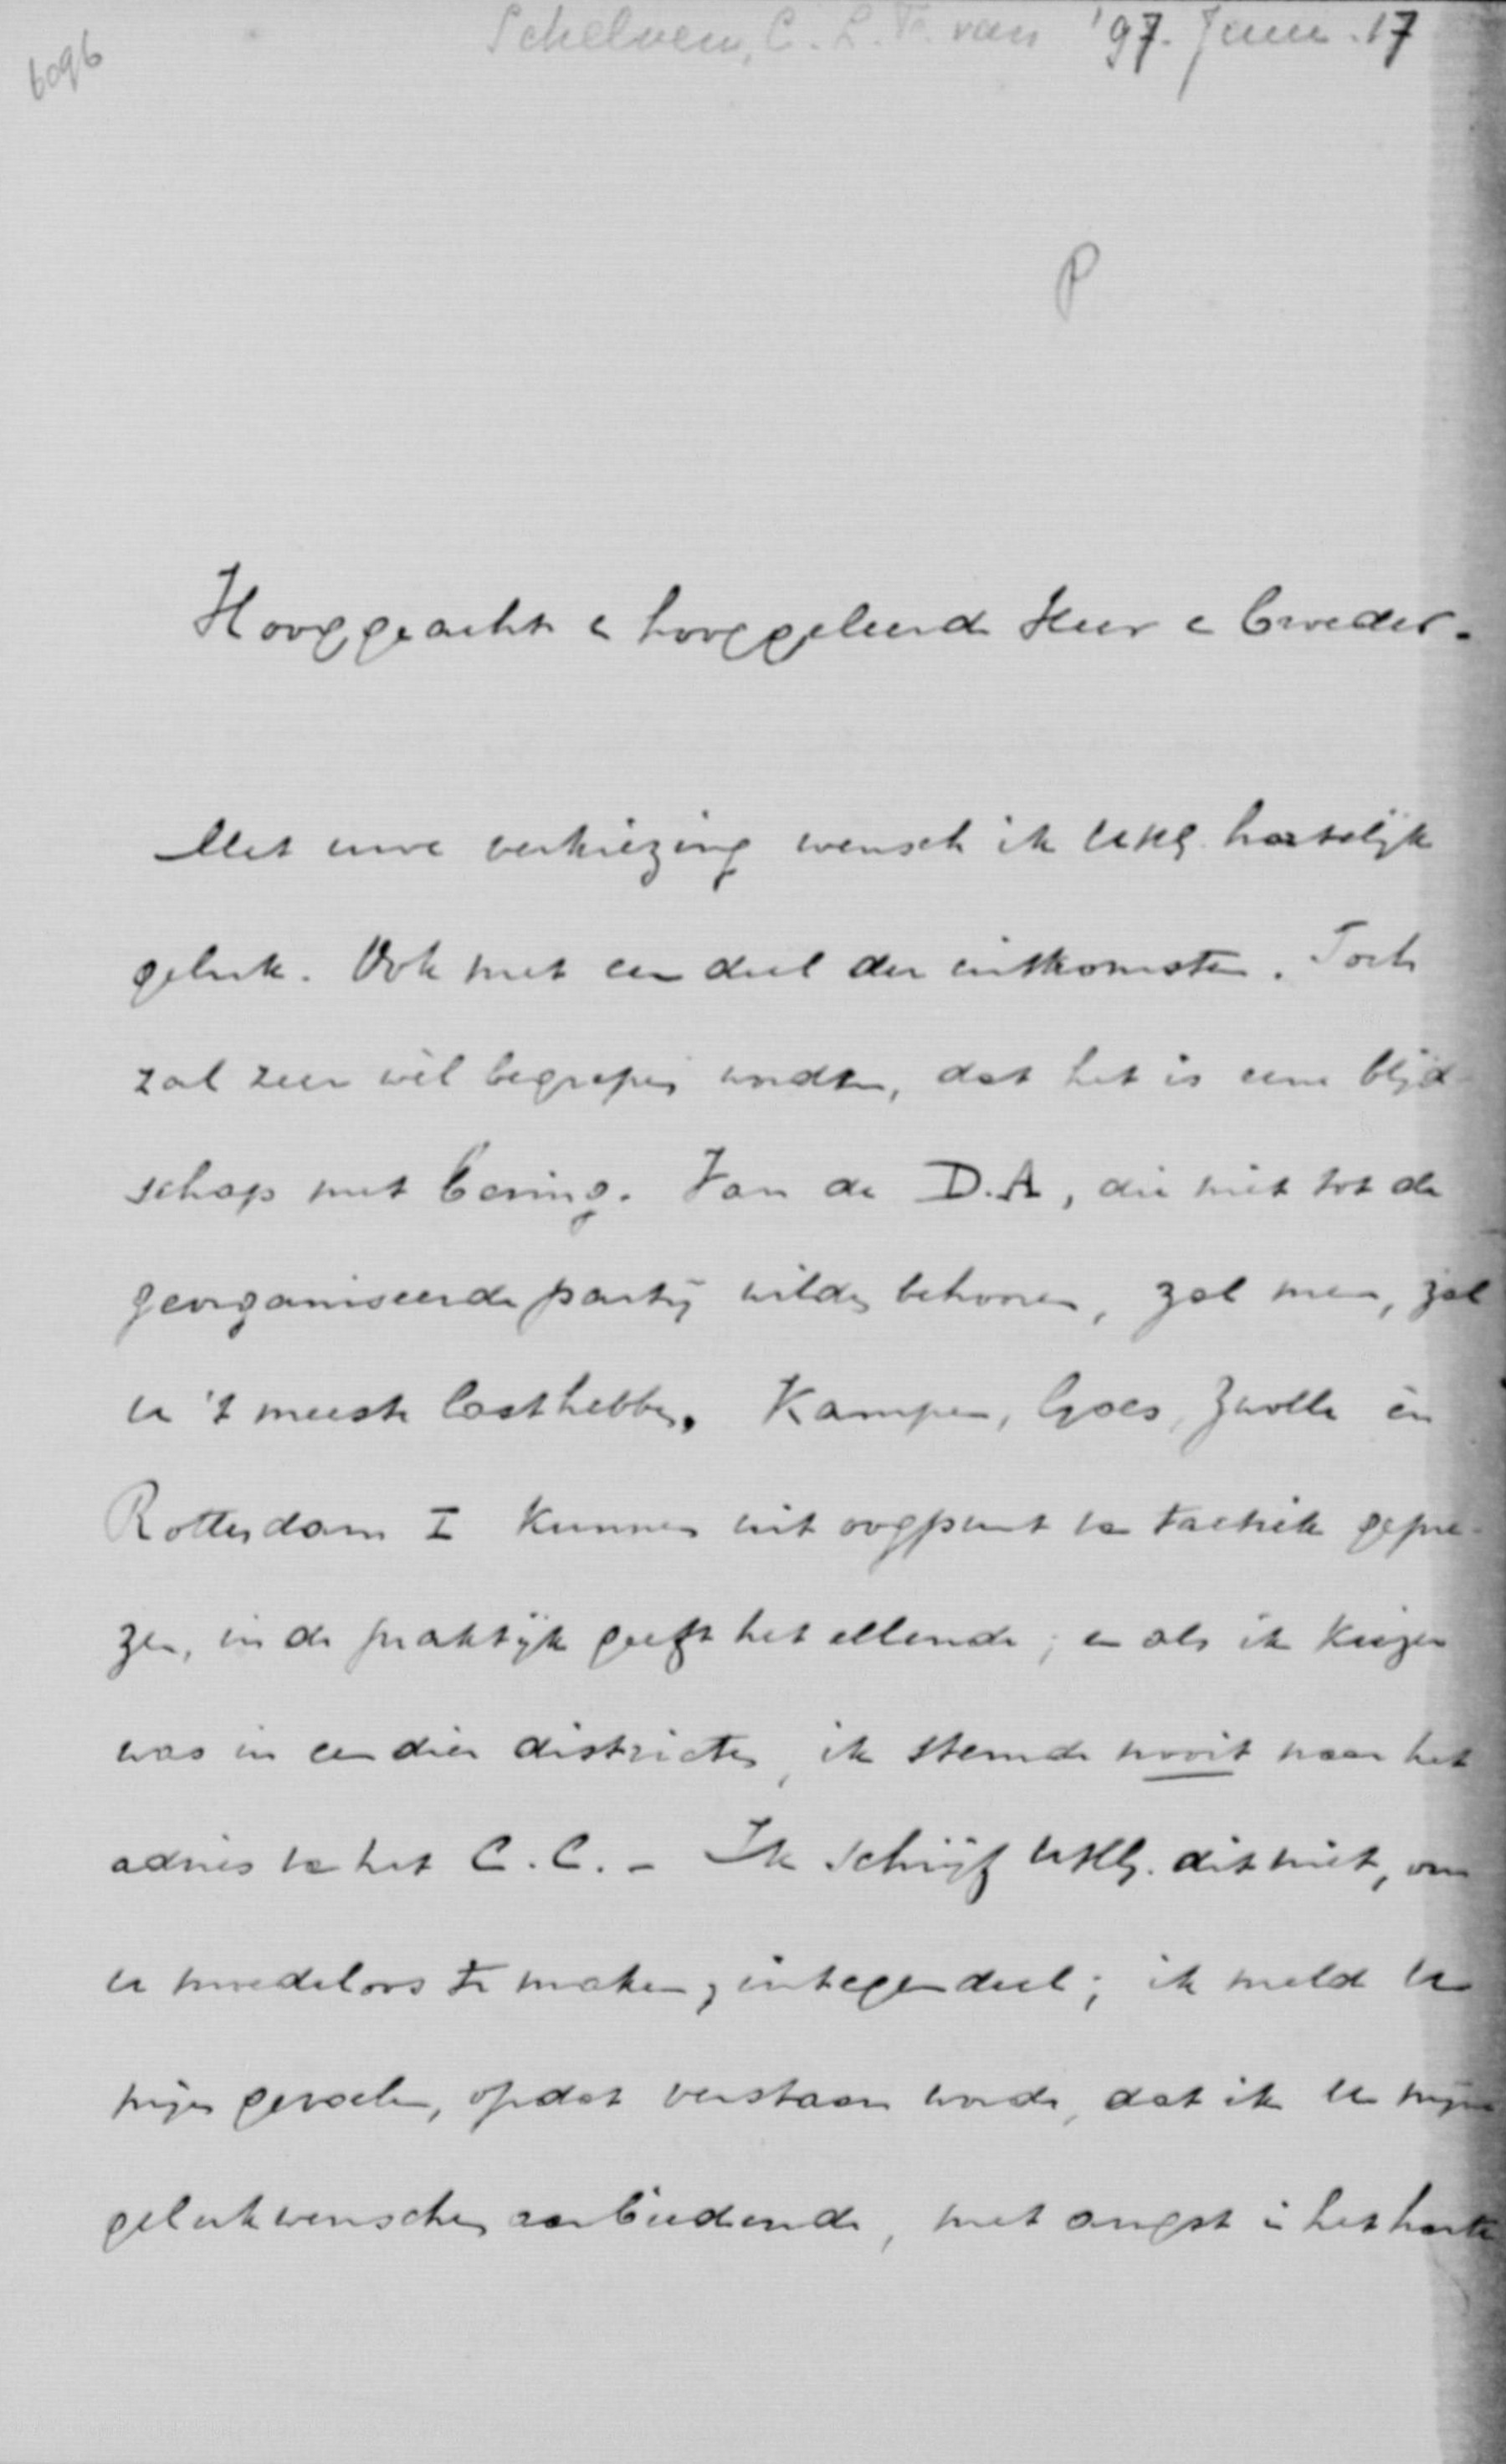 6096
Schelven, C. L. F. van '97. Juni. 17
P
Hooggeachte en hooggeleerde Heer en broeder.
Met uwe verkiezing wensch ik UHG. hartelijk
geluk. Ook met een deel der uitkomsten. Toch
zal zeer wèl begrepen worden, dat het is eene blijd-
schap met beving. Van de D.A, die niet tot de
georganiseerde partij wilden behooren, zal men, zal
u 't meeste last hebben. Kampen, Goes, Zwolle èn
Rotterdam I kunnen uit oogpunt van tactiek gepre-
zen, in de praktijk geeft het ellende; en als ik kiezer
was in een dier districten, ik stemde nooit naar het
advies van het C.C. - Ik schrijf UHG. dit niet, om
u moedeloos te maken, integendeel; ik meld u
mijn gevoelen, opdat verstaan worde, dat ik u mijne
gelukwenschen aanbiedende, met angst in het harte